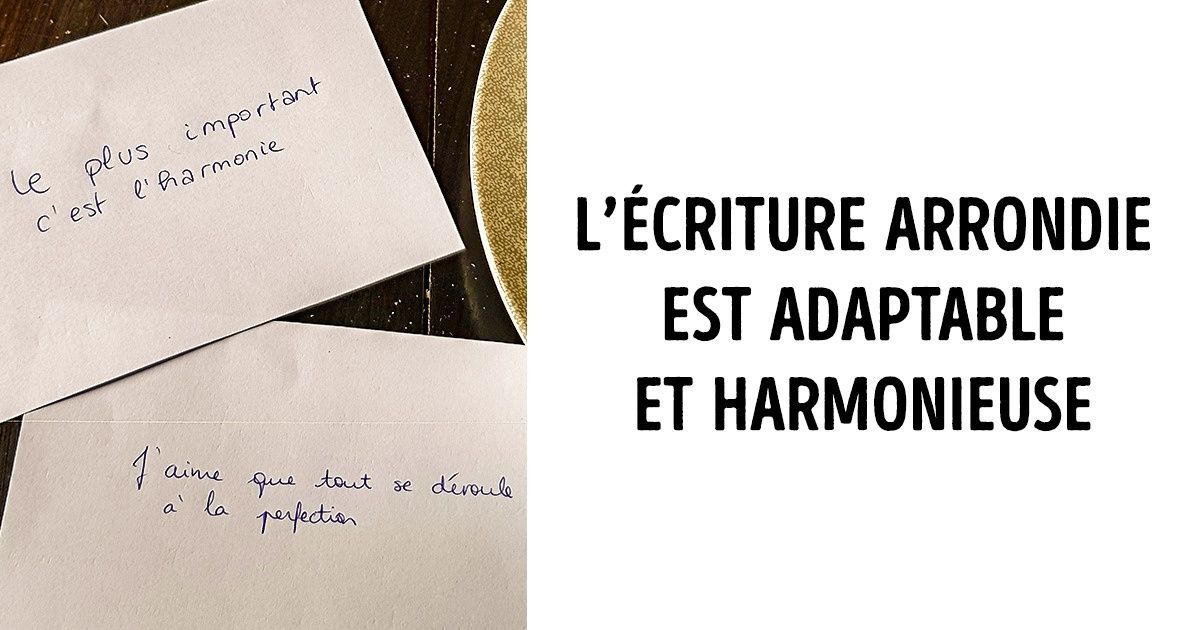 le plus important
c'est l'harmonie
J'aime que tout se déroule
à la perfection
L'ÉCRITURE ARRONDIE
EST ADAPTABLE
ET HARMONIEUSE